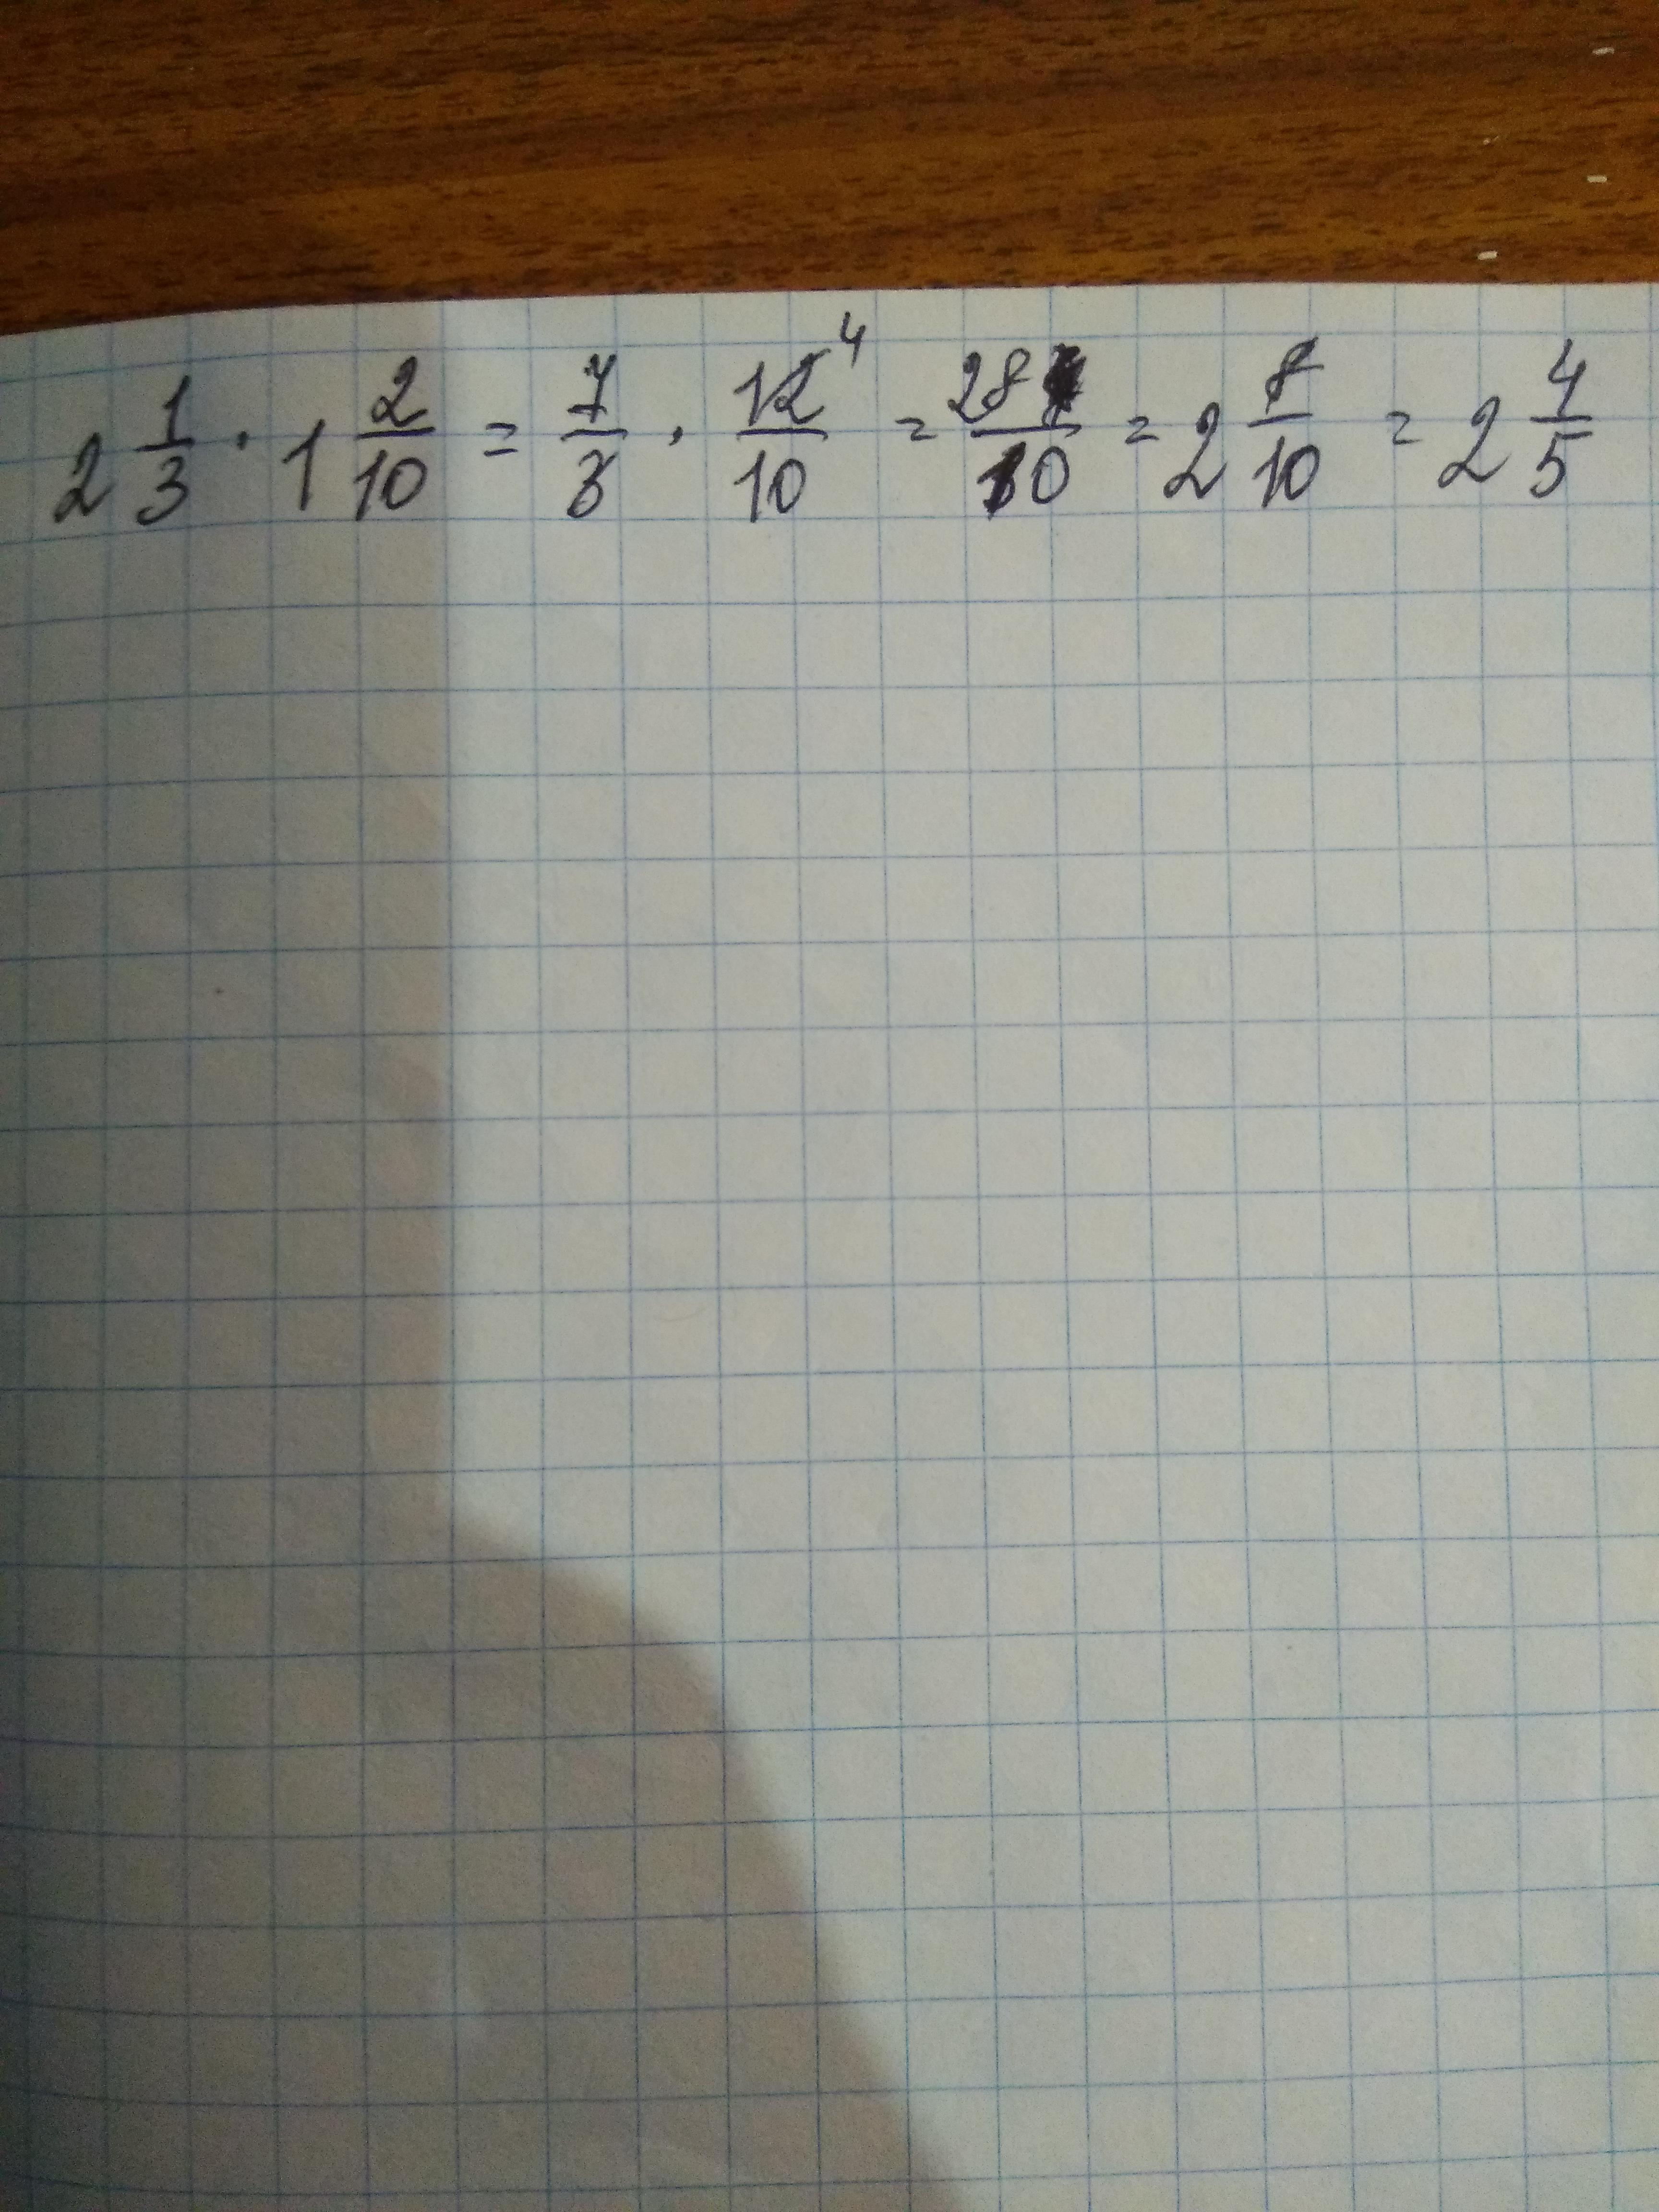 2 1/3 · 1 2/10 = 7/3 · 12/10 4 = 28/10 = 2 8/10 = 2 4/5